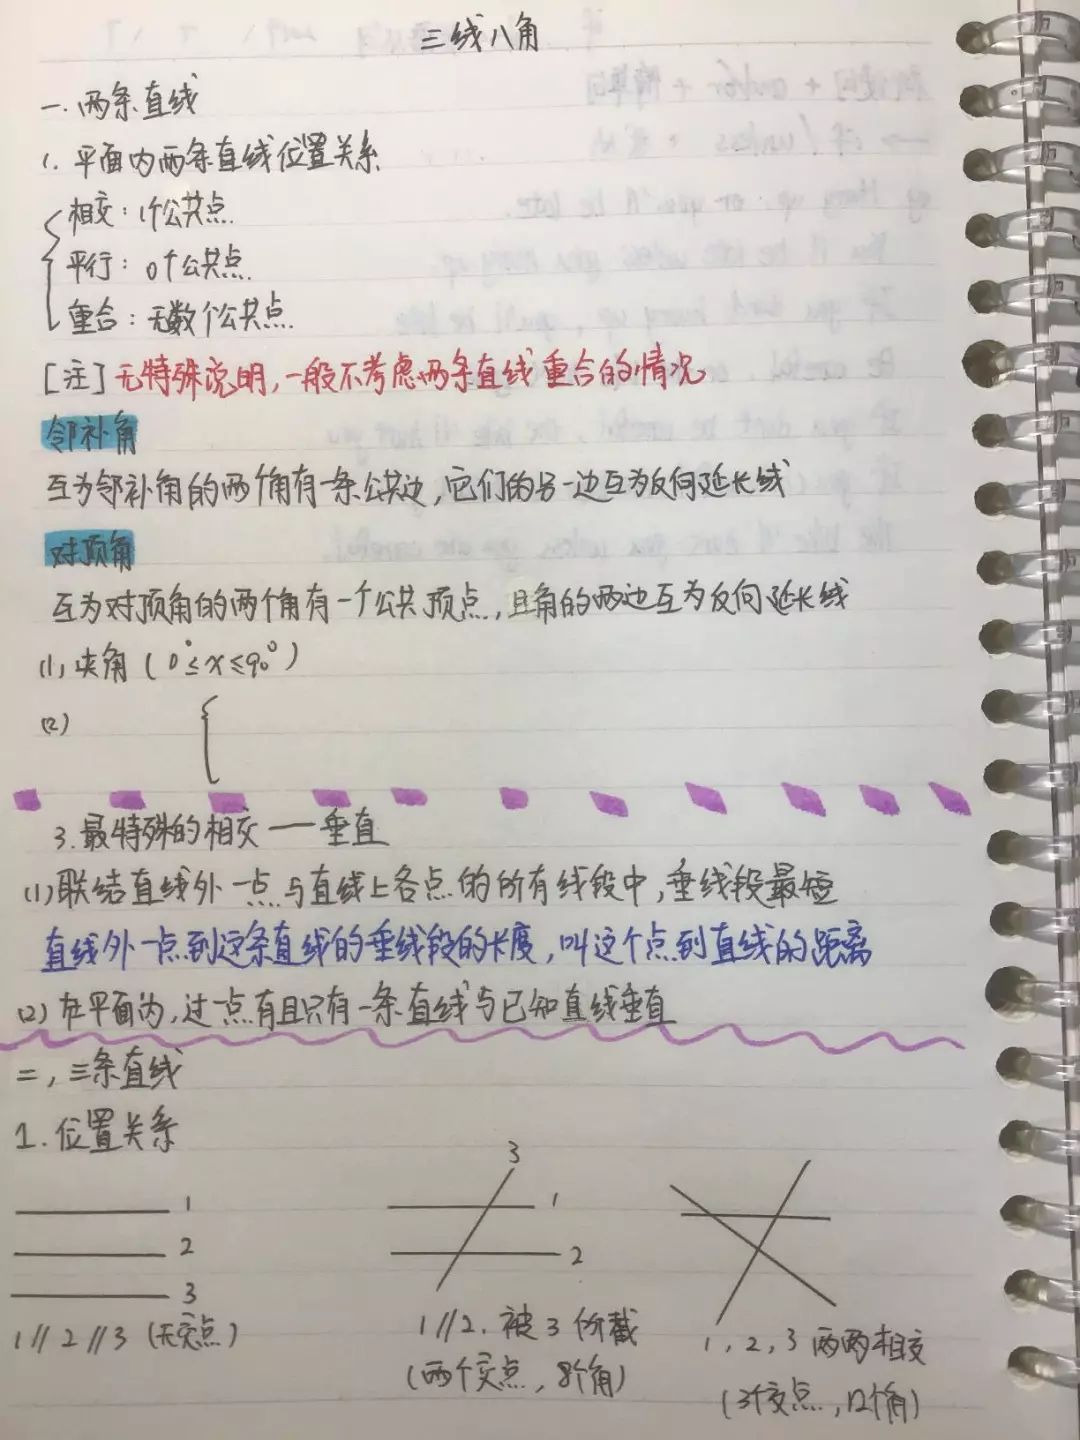 三线八角
一.两条直线
1.平面内两条直线位置关系
相交:1个公共点.
平行:0个公共点.
重合:无数个公共点.
[注]无特殊说明,一般不考虑两条直线重合的情况
邻补角
互为邻补角的两个角有一条公共边,它们的另一边互为反向延长线
对顶角
互为对顶角的两个角有一个公共顶点,且角的两边互为反向延长线
(1)夹角(0°≤x≤90°)
(2)
3.最特殊的相交——垂直
(1)联结直线外一点与直线上各点的所有线段中,垂线段最短
直线外一点到这条直线的垂线段的长度,叫这个点到直线的距离
(2)在平面内,过一点有且只有一条直线与已知直线垂直
二,三条直线
1.位置关系
1
2
3
1//2//3(无交点)
3
1
2
1//2.被3所截
(两个交点,8个角)
1,2,3两两相交
(3个交点,12个角)